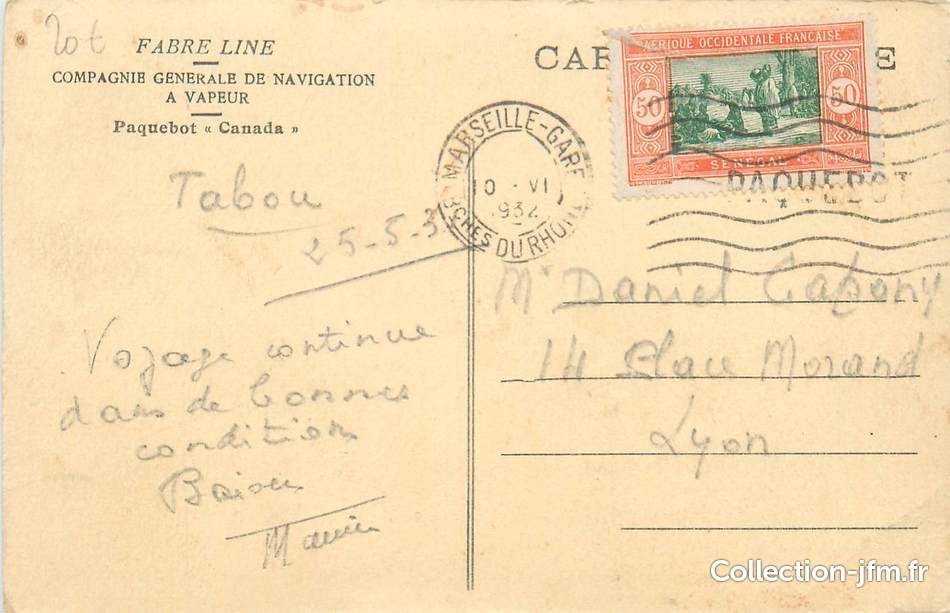 20 €
FABRE LINE
COMPAGNIE GENERALE DE NAVIGATION
A VAPEUR
Paquebot « Canada »
Tabou
25-5-3
Voyage continue
dans de bonnes
conditions
CAR
E
AFRIQUE OCCIDENTALE FRANÇAISE
50
50
SENEGAL
MARSEILLE-GARE
10 - VI
1932
BCHES DU RHONE
PAQUEBOT
Mr Daniel
14 Place Morand
Lyon
Collection-jfm.fr